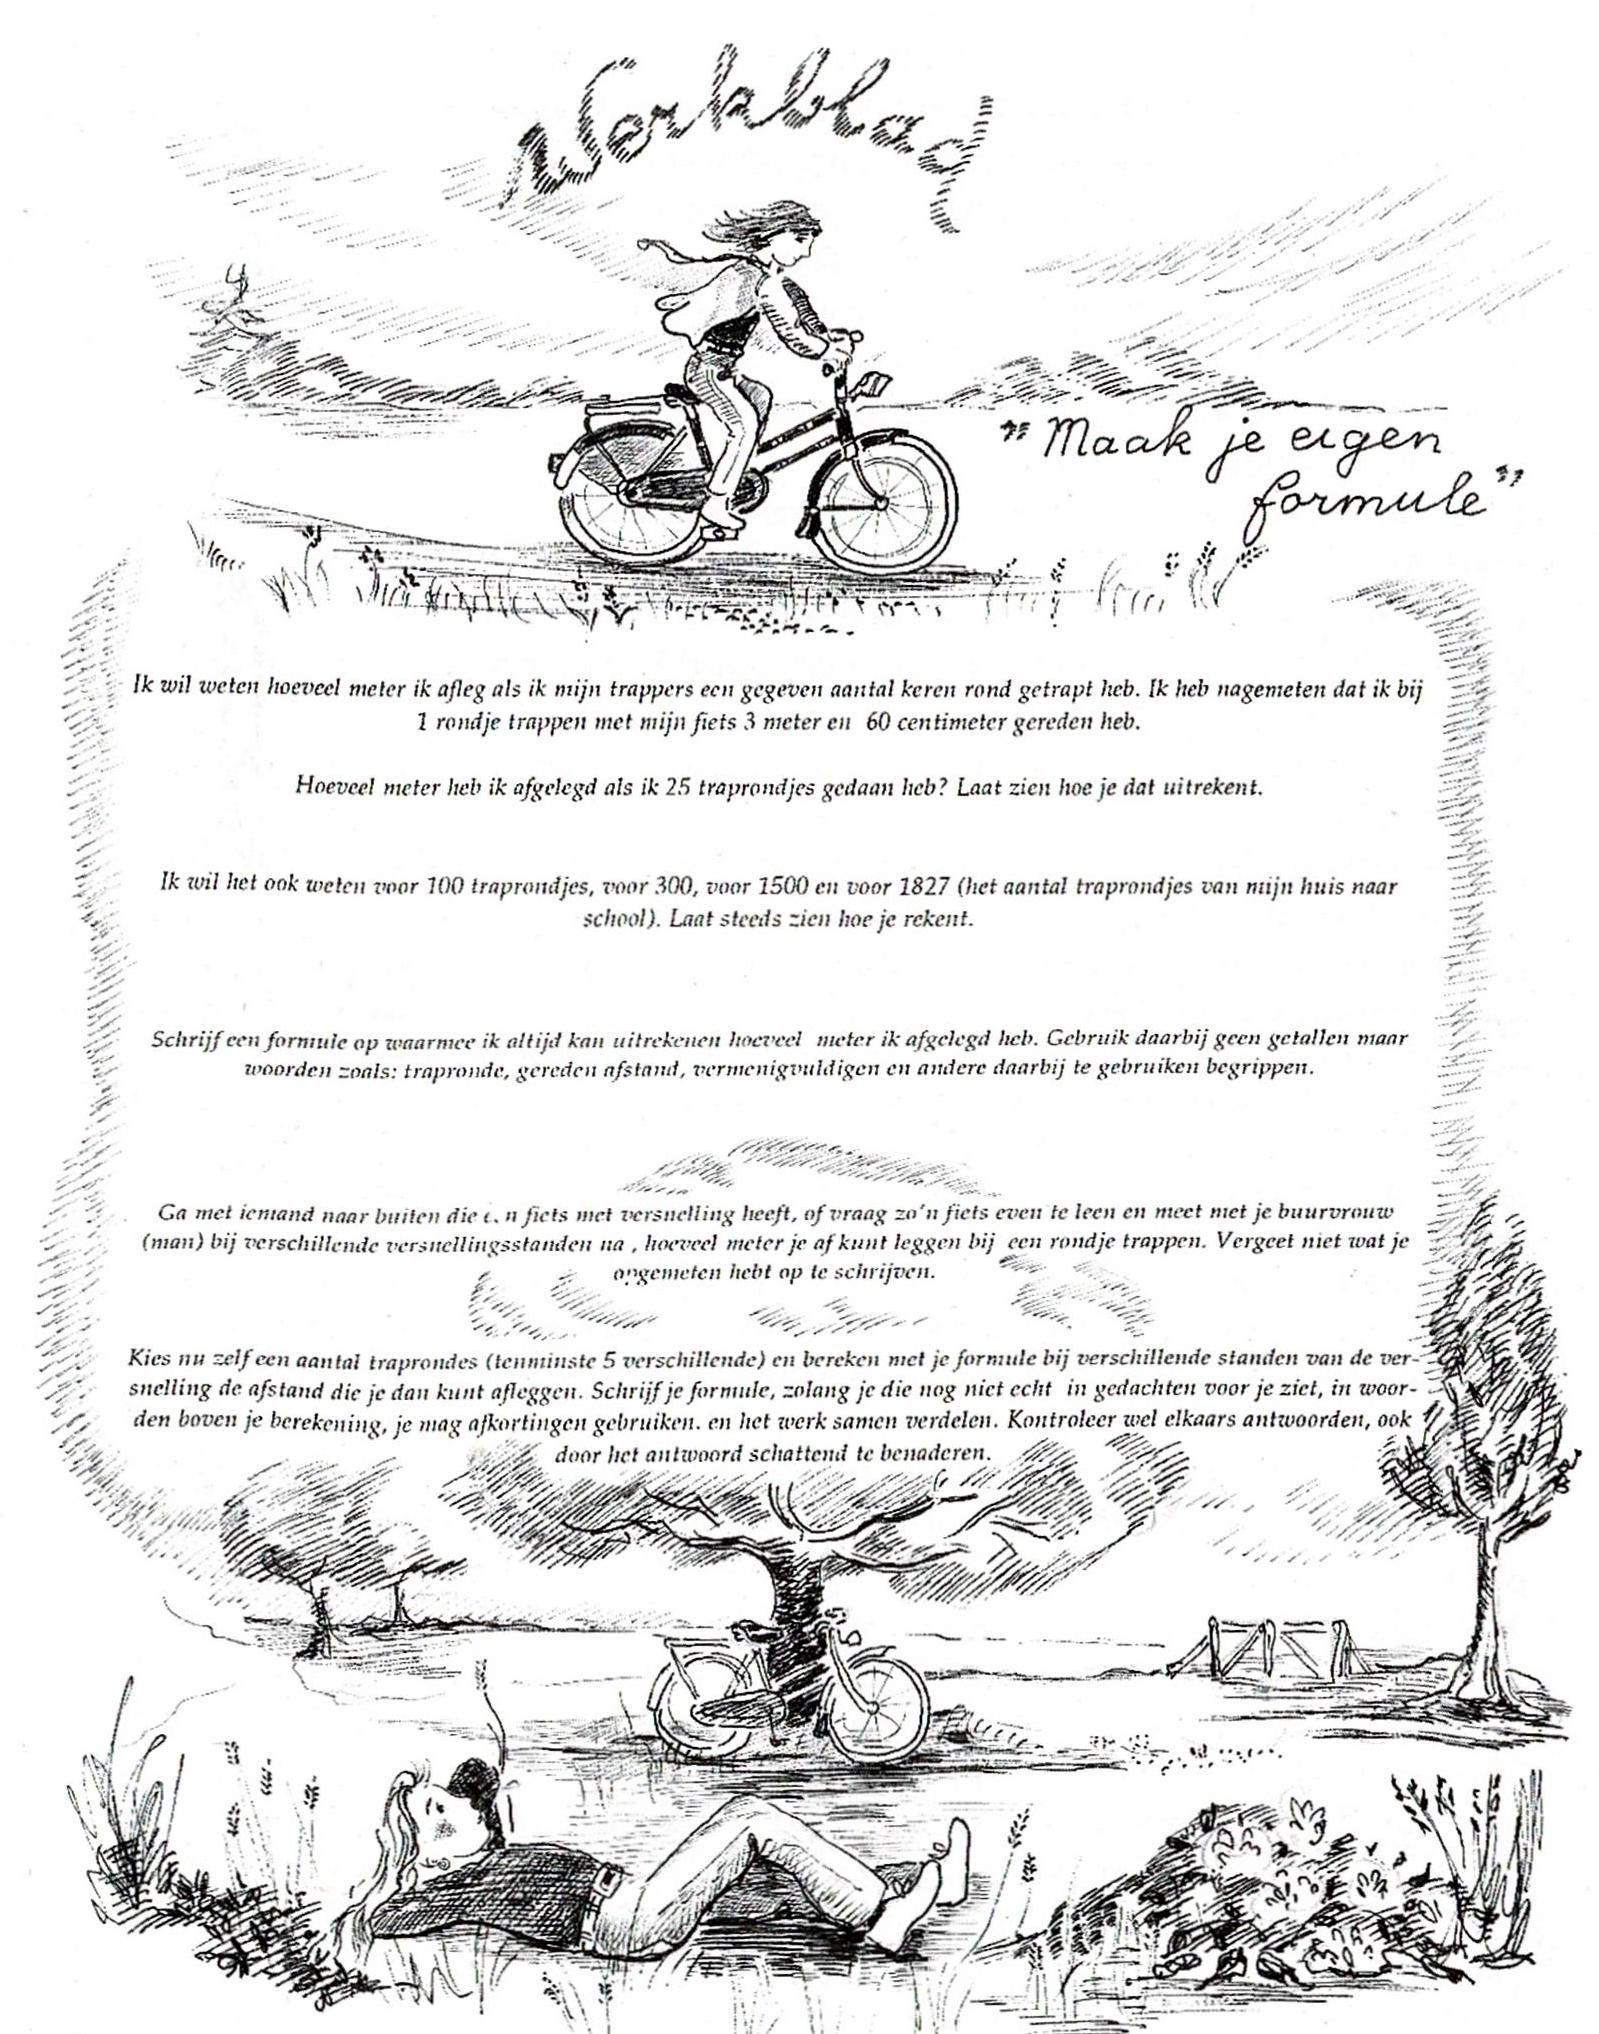 Werkblad
"Maak je eigen
formule"
Ik wil weten hoeveel meter ik afleg als ik mijn trappers een gegeven aantal keren rond getrapt heb. Ik heb nagemeten dat ik bij
1 rondje trappen met mijn fiets 3 meter en 60 centimeter gereden heb.
Hoeveel meter heb ik afgelegd als ik 25 traprondjes gedaan heb? Laat zien hoe je dat uitrekent.
Ik wil het ook weten voor 100 traprondjes, voor 300, voor 1500 en voor 1827 (het aantal traprondjes van mijn huis naar
school). Laat steeds zien hoe je rekent.
Schrijf een formule op waarmee ik altijd kan uitrekenen hoeveel meter ik afgelegd heb. Gebruik daarbij geen getallen maar
woorden zoals: trapronde, gereden afstand, vermenigvuldigen en andere daarbij te gebruiken begrippen.
Ga met iemand naar buiten die fiets met versnelling heeft, of vraag zo'n fiets even te leen en meet met je buurvrouw
(man) bij verschillende versnellingsstanden na , hoeveel meter je af kunt leggen bij een rondje trappen. Vergeet niet wat je
opgemeten hebt op te schrijven.
Kies nu zelf een aantal traprondes (tenminste 5 verschillende) en bereken met je formule bij verschillende standen van de ver-
snelling de afstand die je dan kunt afleggen. Schrijf je formule, zolang je die nog niet echt in gedachten voor je ziet, in woor-
den boven je berekening, je mag afkortingen gebruiken. en het werk samen verdelen. Kontroleer wel elkaars antwoorden, ook
door het antwoord schattend te benaderen.